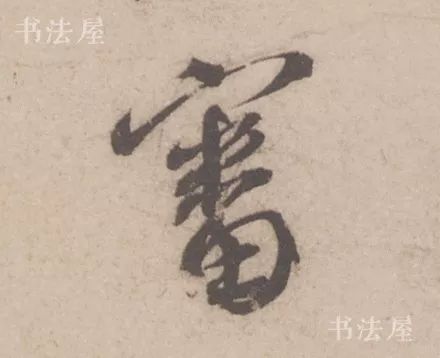 书法屋
審
书法屋